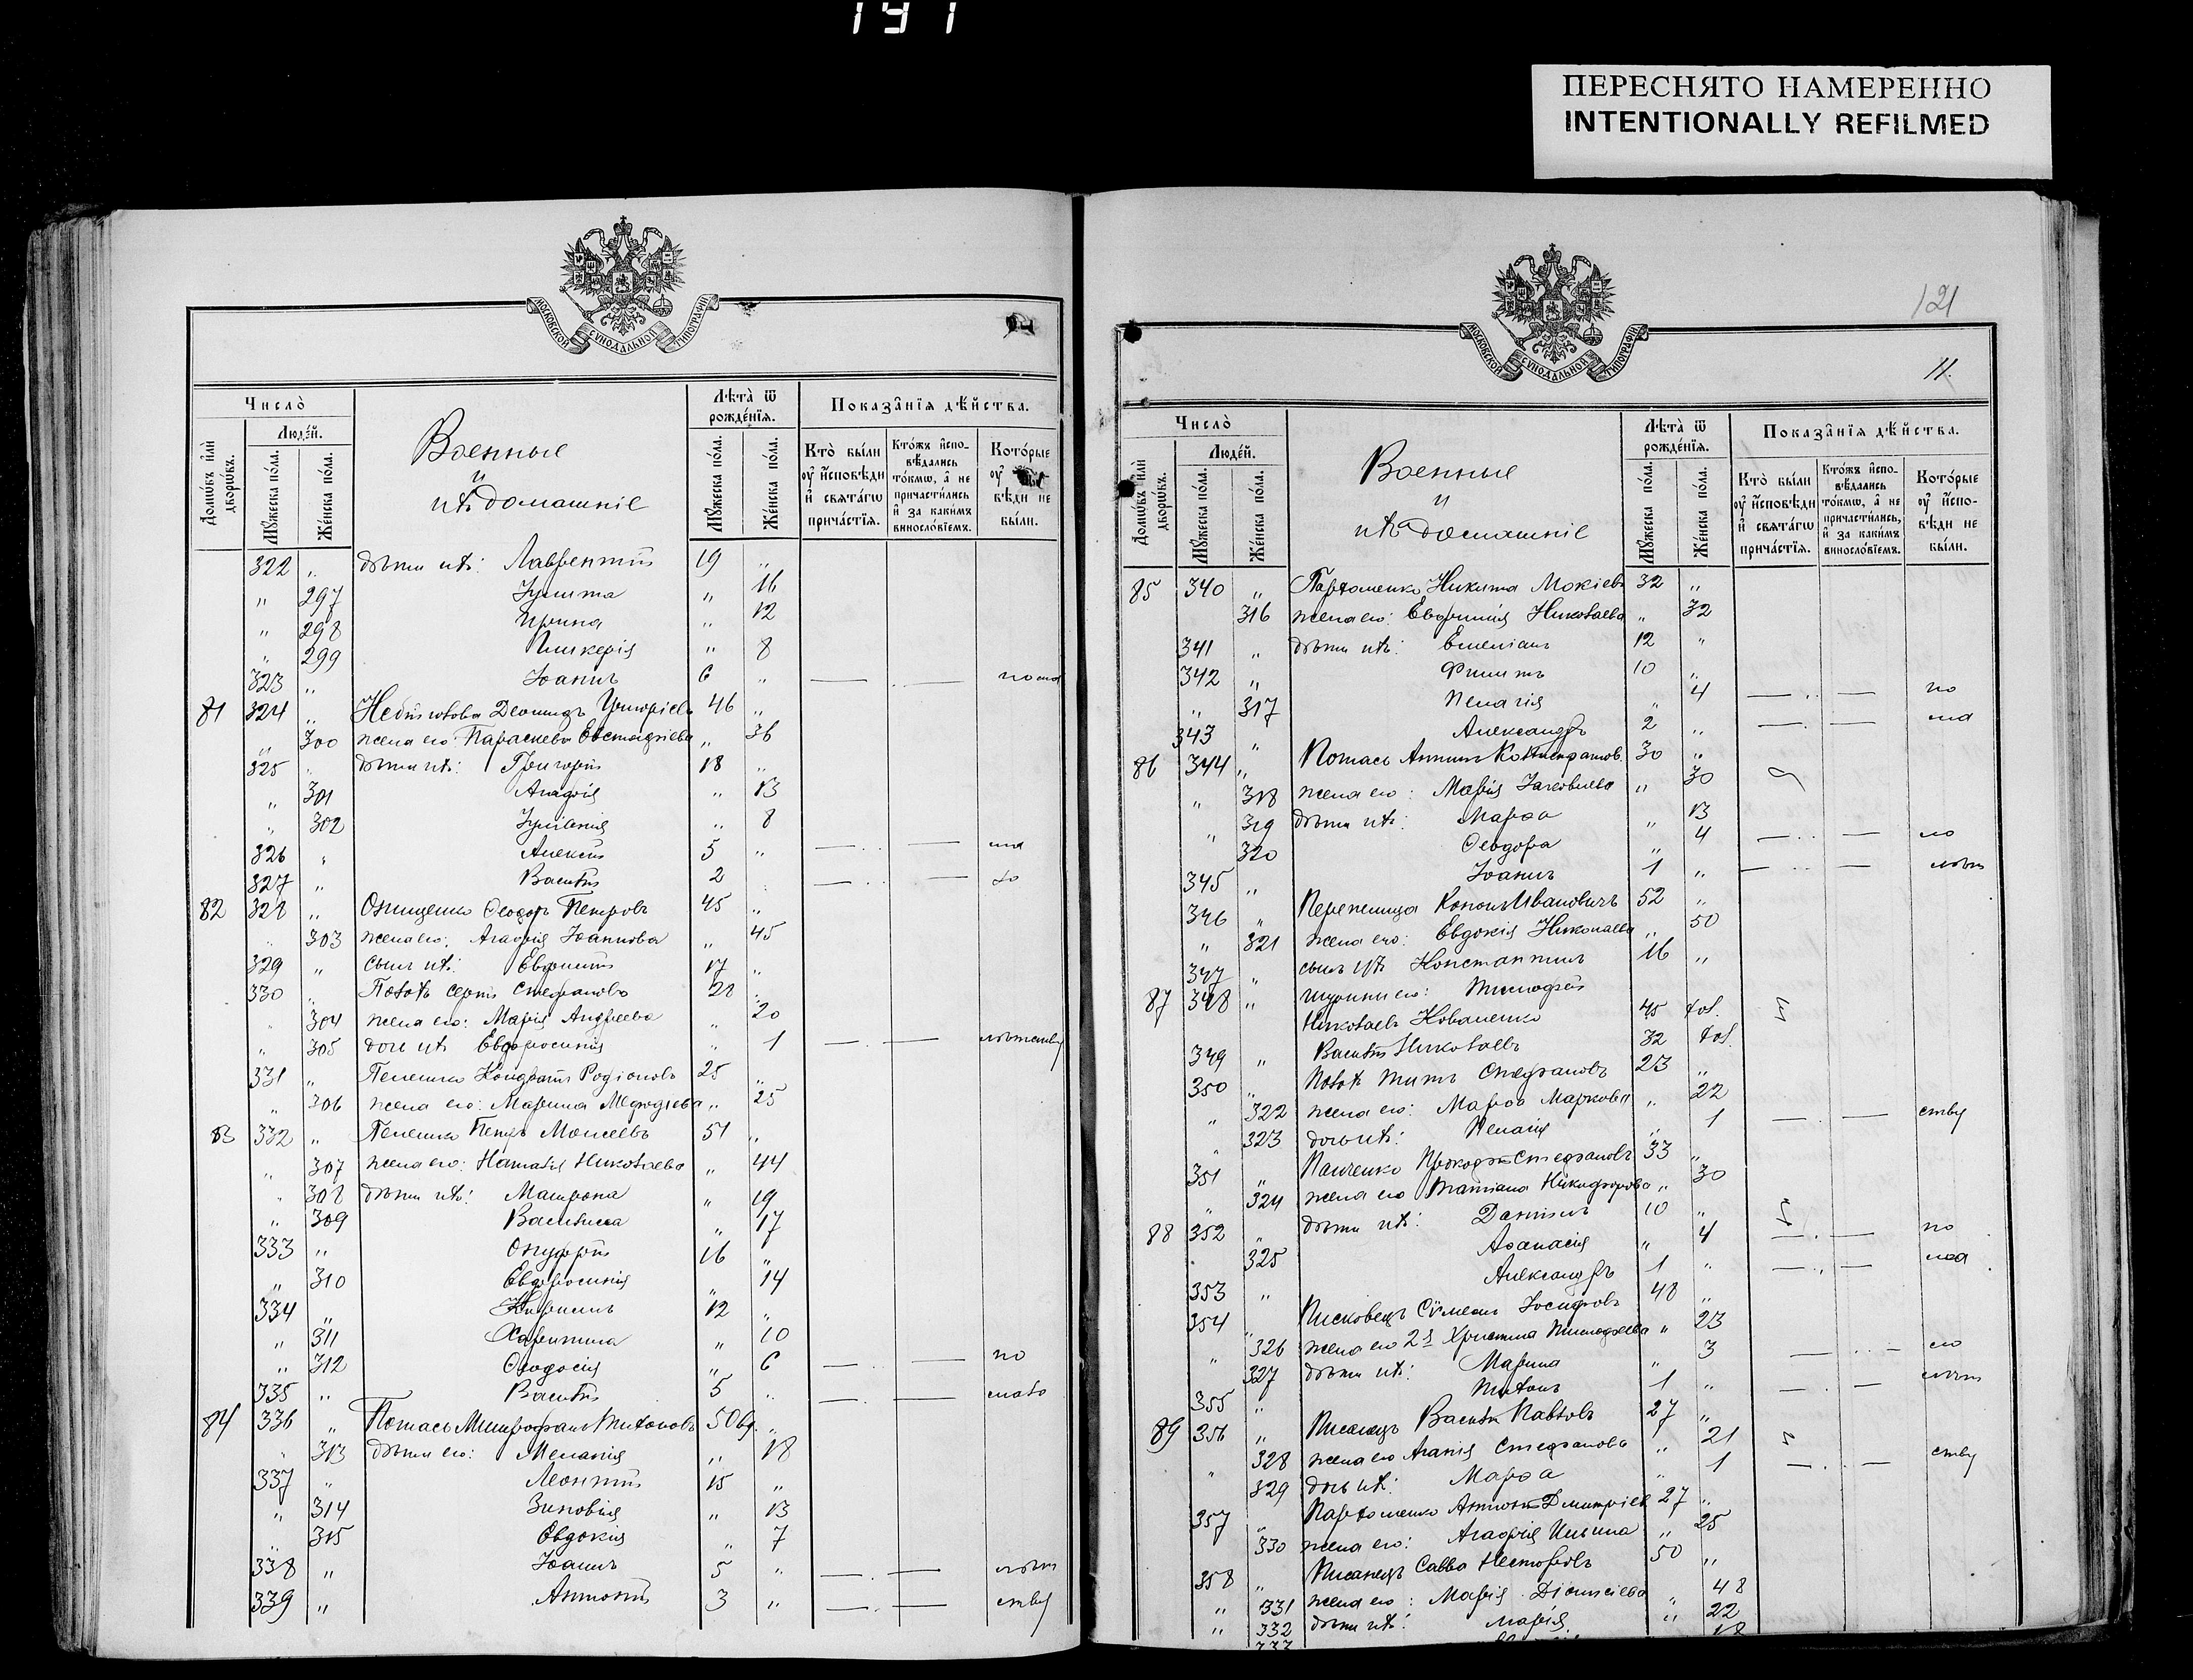 191
ПЕРЕСНЯТО НАМЕРЕННО
INTENTIONALLY REFILMED
МОСКОВСКОЙ СѴНОДАЛЬНОЙ ТИПОГРАФІИ
Число̀
Людéй.
Домѡ́въ и҆лѝ дворѡ́въ.
Мꙋ́жеска по́ла.
Же́нска по́ла.
Военные
и
ихъ домашніе
Лѣта̀ ѿ рожде́нїѧ.
Мꙋ́жеска по́ла.
Же́нска по́ла.
Показа̑нїѧ дѣ́йства.
Кто̀ бы́ли оу҆ и҆́сповѣди и҆ свѧта́гѡ прича́стїѧ.
Кто́жъ и҆спо-вѣ́дались то́кмѡ, а҆ не причасти́лись и҆ за каки́мъ винослóвїемъ.
Кото́рые оу҆ вѣди не бы́ли.
322 „ дѣти ихъ: Лаврентій 19 „
„ 297 Іулита „ 16
„ 298 Ирина „ 12
„ 299 Гликерія „ 8
323 „ Іоаннъ 6 „ — —
81 324 „ Леонидъ Григоріевъ 46 „
„ 300 жена его: Параскева Евстафіева „ 36
325 „ дѣти ихъ: Григорій 18 „
„ 301 Агафія „ 13
„ 302 Іуліанія „ 8
326 „ Алексій 5 „ — —
327 „ Василій 2 — —
82 328 „ Онищенко Ѳеодоръ Петровъ 45 „
303 жена его: Агафія Іоаннова „ 45
329 „ сынъ ихъ: Евфимій 17 „
330 „ Сергій Стефановъ 28
304 жена его: Марія Андреева „ 20
„ 305 дочь ихъ Евфросинія „ 1 — — лѣтству
331 „ Пелешко Кондратій Родіоновъ 25 „
„ 306 жена его: Марина Меѳодіева „ 25
83 332 „ Пелешко Петръ Моисеевъ 51 „
„ 307 жена его: Наталія Николаева „ 44
„ 308 дѣти ихъ: Матрона „ 19
„ 309 Василисса „ 17
333 „ Онуфрій 16 „
„ 310 Евфросинія „ 14
334 „ Кириллъ 12 „
„ 311 Харитина „ 10
„ 312 Ѳеодосія „ 6 — — по
335 „ Василій 5 „ — — мало
84 336 „ Потась Митрофанъ Тихоновъ 50 вд. „
„ 313 дѣти его: Меланія „ 18
337 „ Леонтій 15 „
„ 314 Зиновія „ 13
„ 315 Евдокія „ 7
338 „ Іоаннъ 5 „ — — лѣт
339 „ Антоній 3 „ — — ству
МОСКОВСКОЙ СѴНОДАЛЬНОЙ ТИПОГРАФІИ
121
11.
Число̀
Людéй.
Домѡ́въ и҆лѝ дворѡ́въ.
Мꙋ́жеска по́ла.
Же́нска по́ла.
Военные
и
ихъ домашніе
Лѣта̀ ѿ рожде́нїѧ.
Мꙋ́жеска по́ла.
Же́нска по́ла.
Показа̑нїѧ дѣ́йства.
Кто̀ бы́ли оу҆ и҆́сповѣди и҆ свѧта́гѡ прича́стїѧ.
Кто́жъ и҆спо-вѣ́дались то́кмѡ, а҆ не причасти́лись, и҆ за каки́мъ винослóвїемъ.
Кото́рые оу҆ и҆спо-вѣди не бы́ли.
85 340 „ Парѳоменко Никита Мокіевъ 32 „
316 жена его: Евфимія Николаева „ 32
341 „ дѣти ихъ: Емеліанъ 12 „
342 „ Филиппъ 10 „
„ 317 Пелагія „ 4 — — по
343 „ Александръ 2 „ — — мла
86 344 „ Потась 30 „
„ 318 жена его: Марія Іаковлева „ 30
„ 319 дѣти ихъ: Марѳа „ 13
320 Ѳеодора „ 4 — — ло
345 „ Іоаннъ 1 „ — — лѣт
346 „ Перепелица Кононъ Ивановичъ 52 „
„ 321 жена его: Евдокія Николаева „ 50
347 „ сынъ ихъ Константинъ 16 „
87 348 „ шурины его: Тимофей
Николаевъ Коваленко 45 хол.
349 „ Василій Николаевъ 32 хол.
350 „ Титъ Стефановъ 23 „
„ 322 жена его: Марѳа Маркова „ 22
„ 323 дочь ихъ: Пелагія „ 1 — — ству
351 „ Панченко Прокофій Стефановъ 33 „
„ 324 жена его Татіана Никифорова „ 30
88 352 „ дѣти ихъ: Даніилъ 10 „
325 Аѳанасія „ 4 — — по
353 „ Александръ 1 „ — — мла
354 „ Писковецъ Сѵмеонъ Іосифовъ 48 „
„ 326 жена его 2я Христина Тимофеева „ 23
327 дѣти ихъ: Марина „ 3 — —
355 „ Тихонъ 1 „ — — лѣт
89 356 „ Писанецъ Василій Павловъ 27 „
„ 328 жена его Агапія Стефанова „ 21
329 дочь ихъ: Марѳа „ 1 — — ству
357 „ Парѳоменко Антоній Димитріевъ 27 „
330 жена его: Агафія Ильина „ 25
358 „ Писанецъ Савва Несторовъ 50 „
„ 331 жена его: Марія Діонисіева „ 48
„ 332 дѣти ихъ: Марія „ 22
333 18